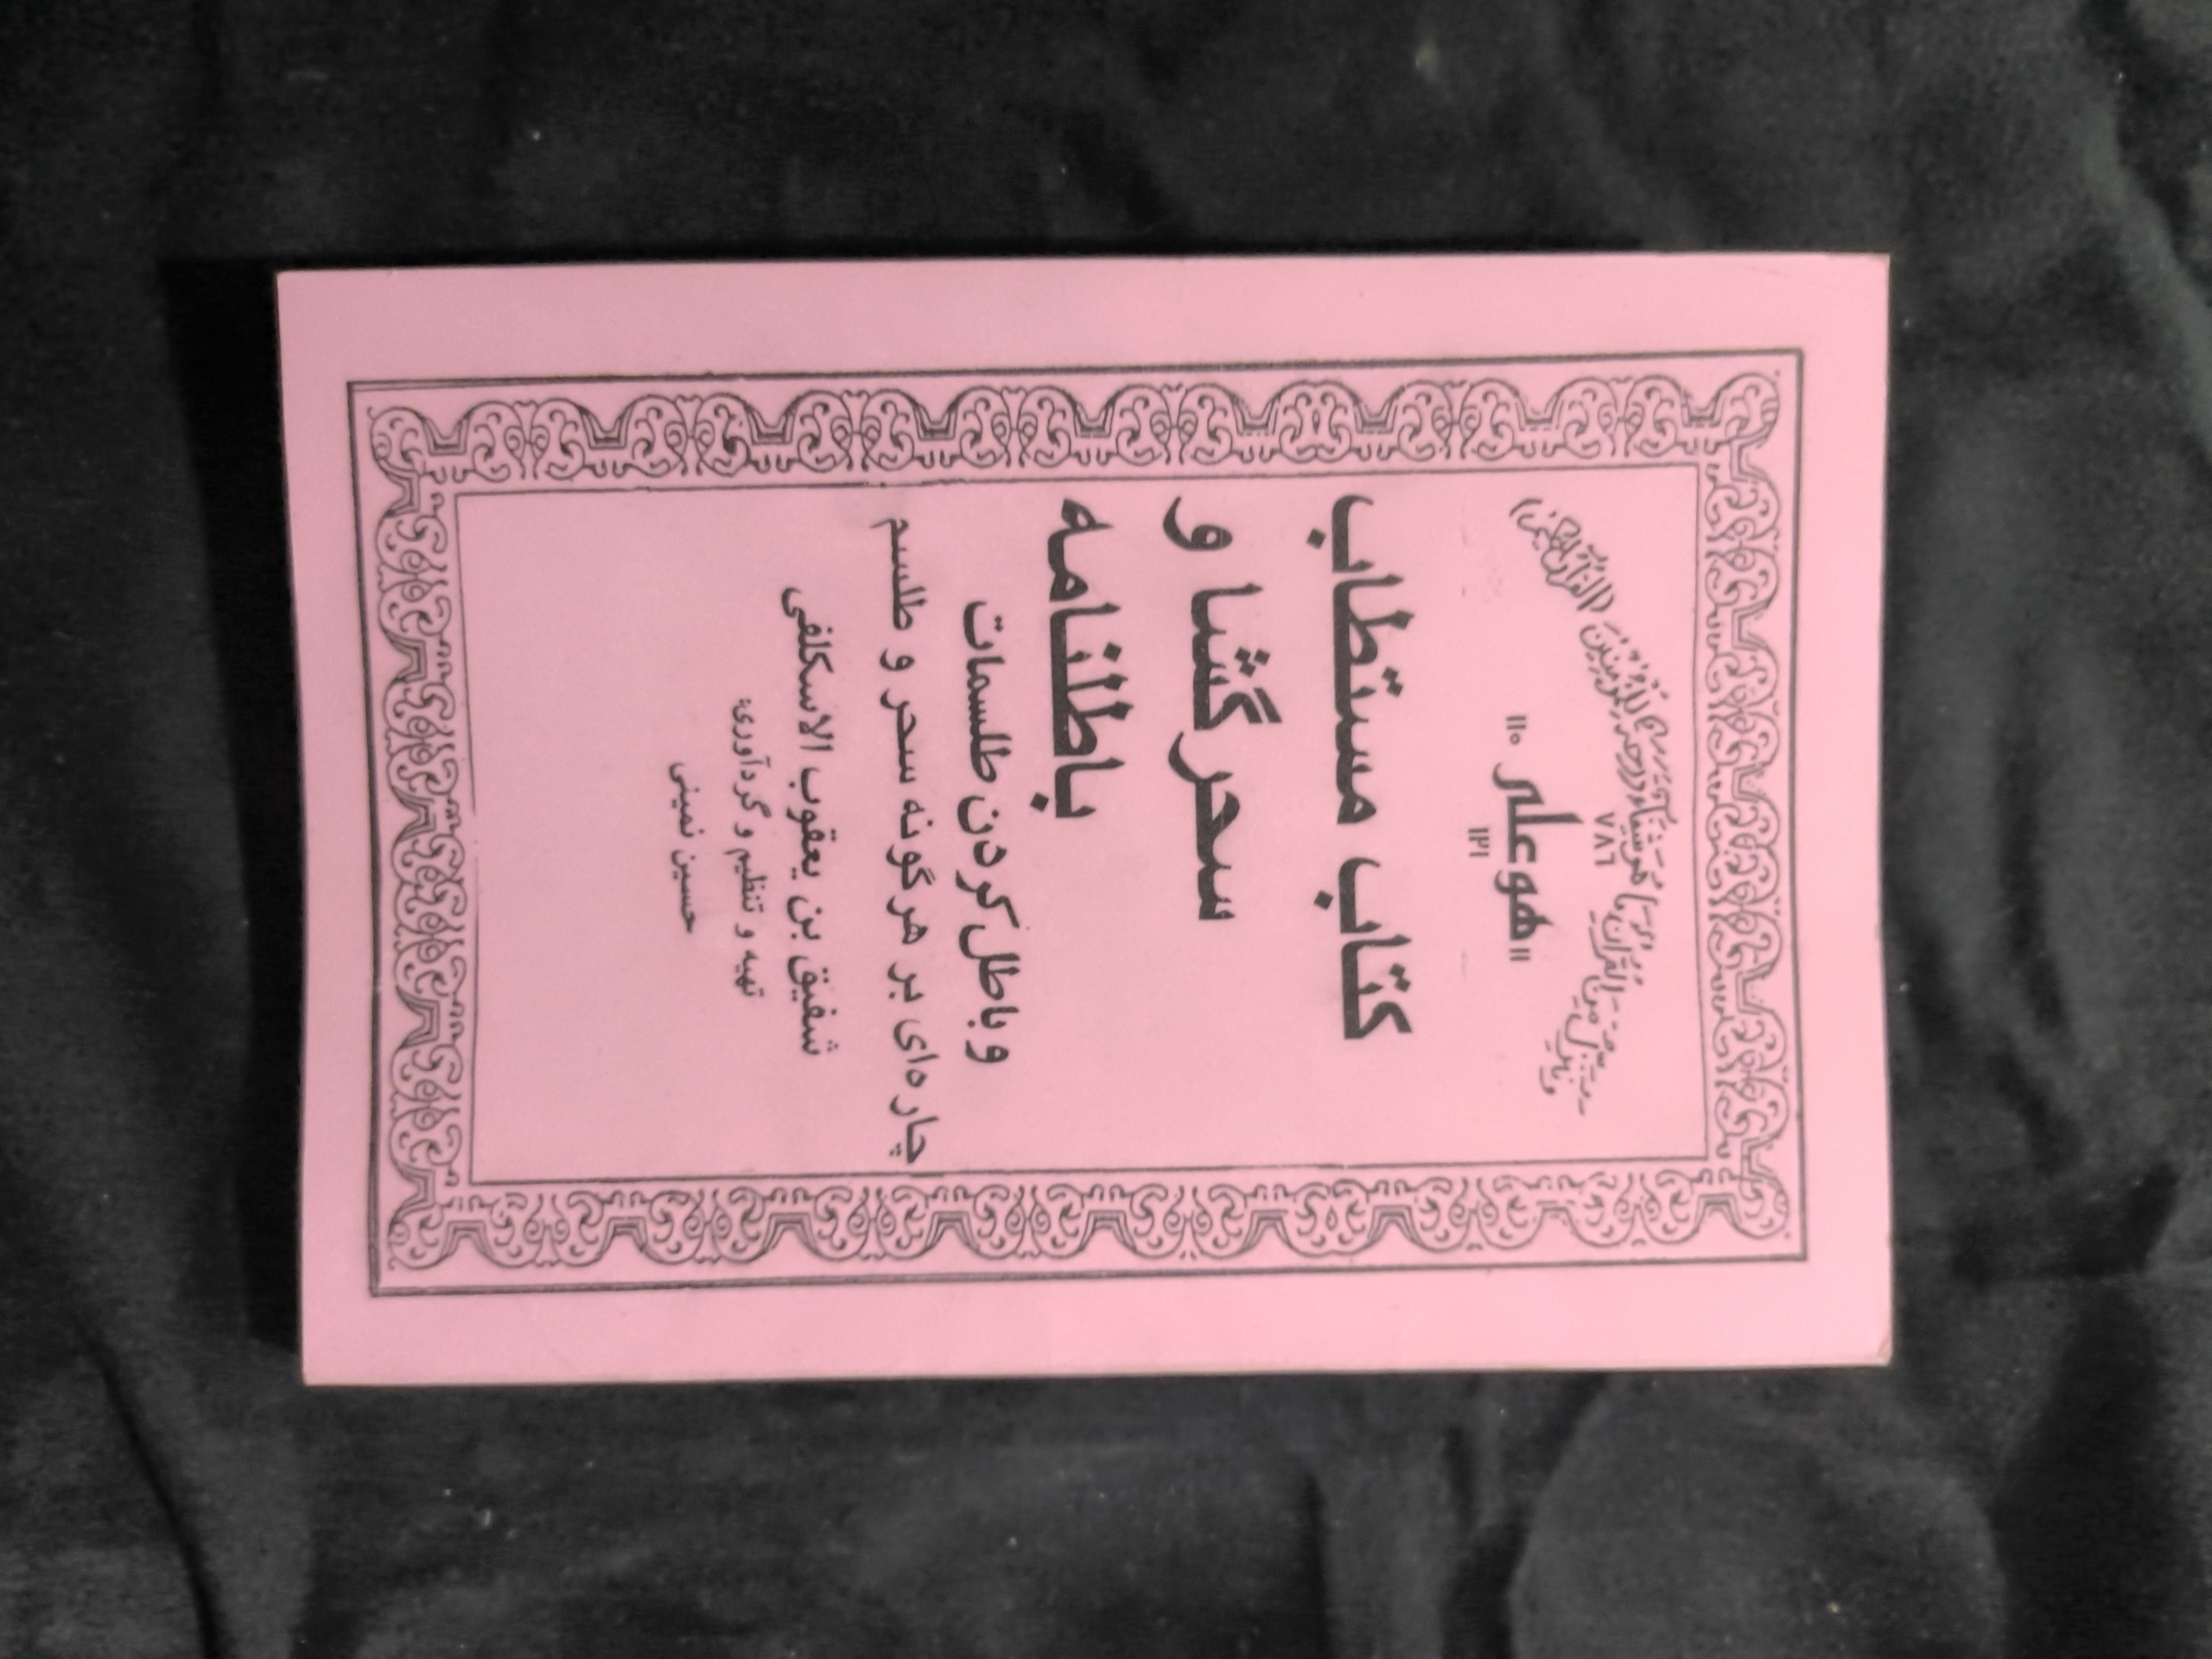 وننزل من القرآن ما هو شفاء ورحمة للمؤمنین
۷۸۶
"هو علی"
۱۱۰
۱۲۱
کتاب مستطاب
سحر گشا و
باطلنامه
و باطل کردن طلسمات
چاره‌ای بر هرگونه سحر و طلسم
شفیق بن یعقوب الاسکلفی
تهیه و تنظیم و گردآوری:
حسین نمینی